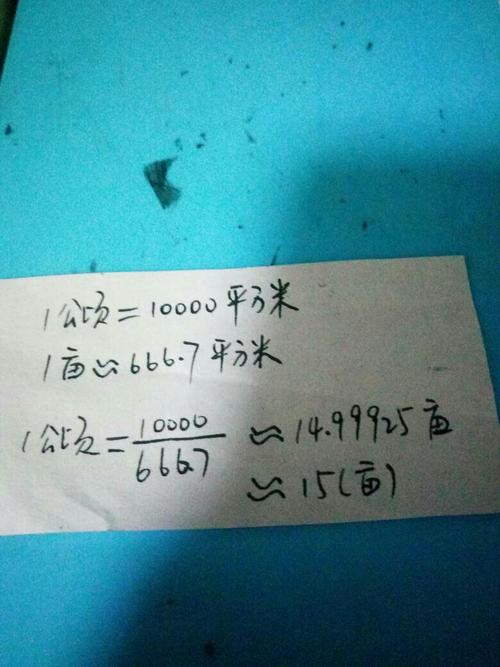 1公顷=10000平方米
1亩≈666.7平方米
1公顷=10000/666.7≈14.99925亩
≈15(亩)